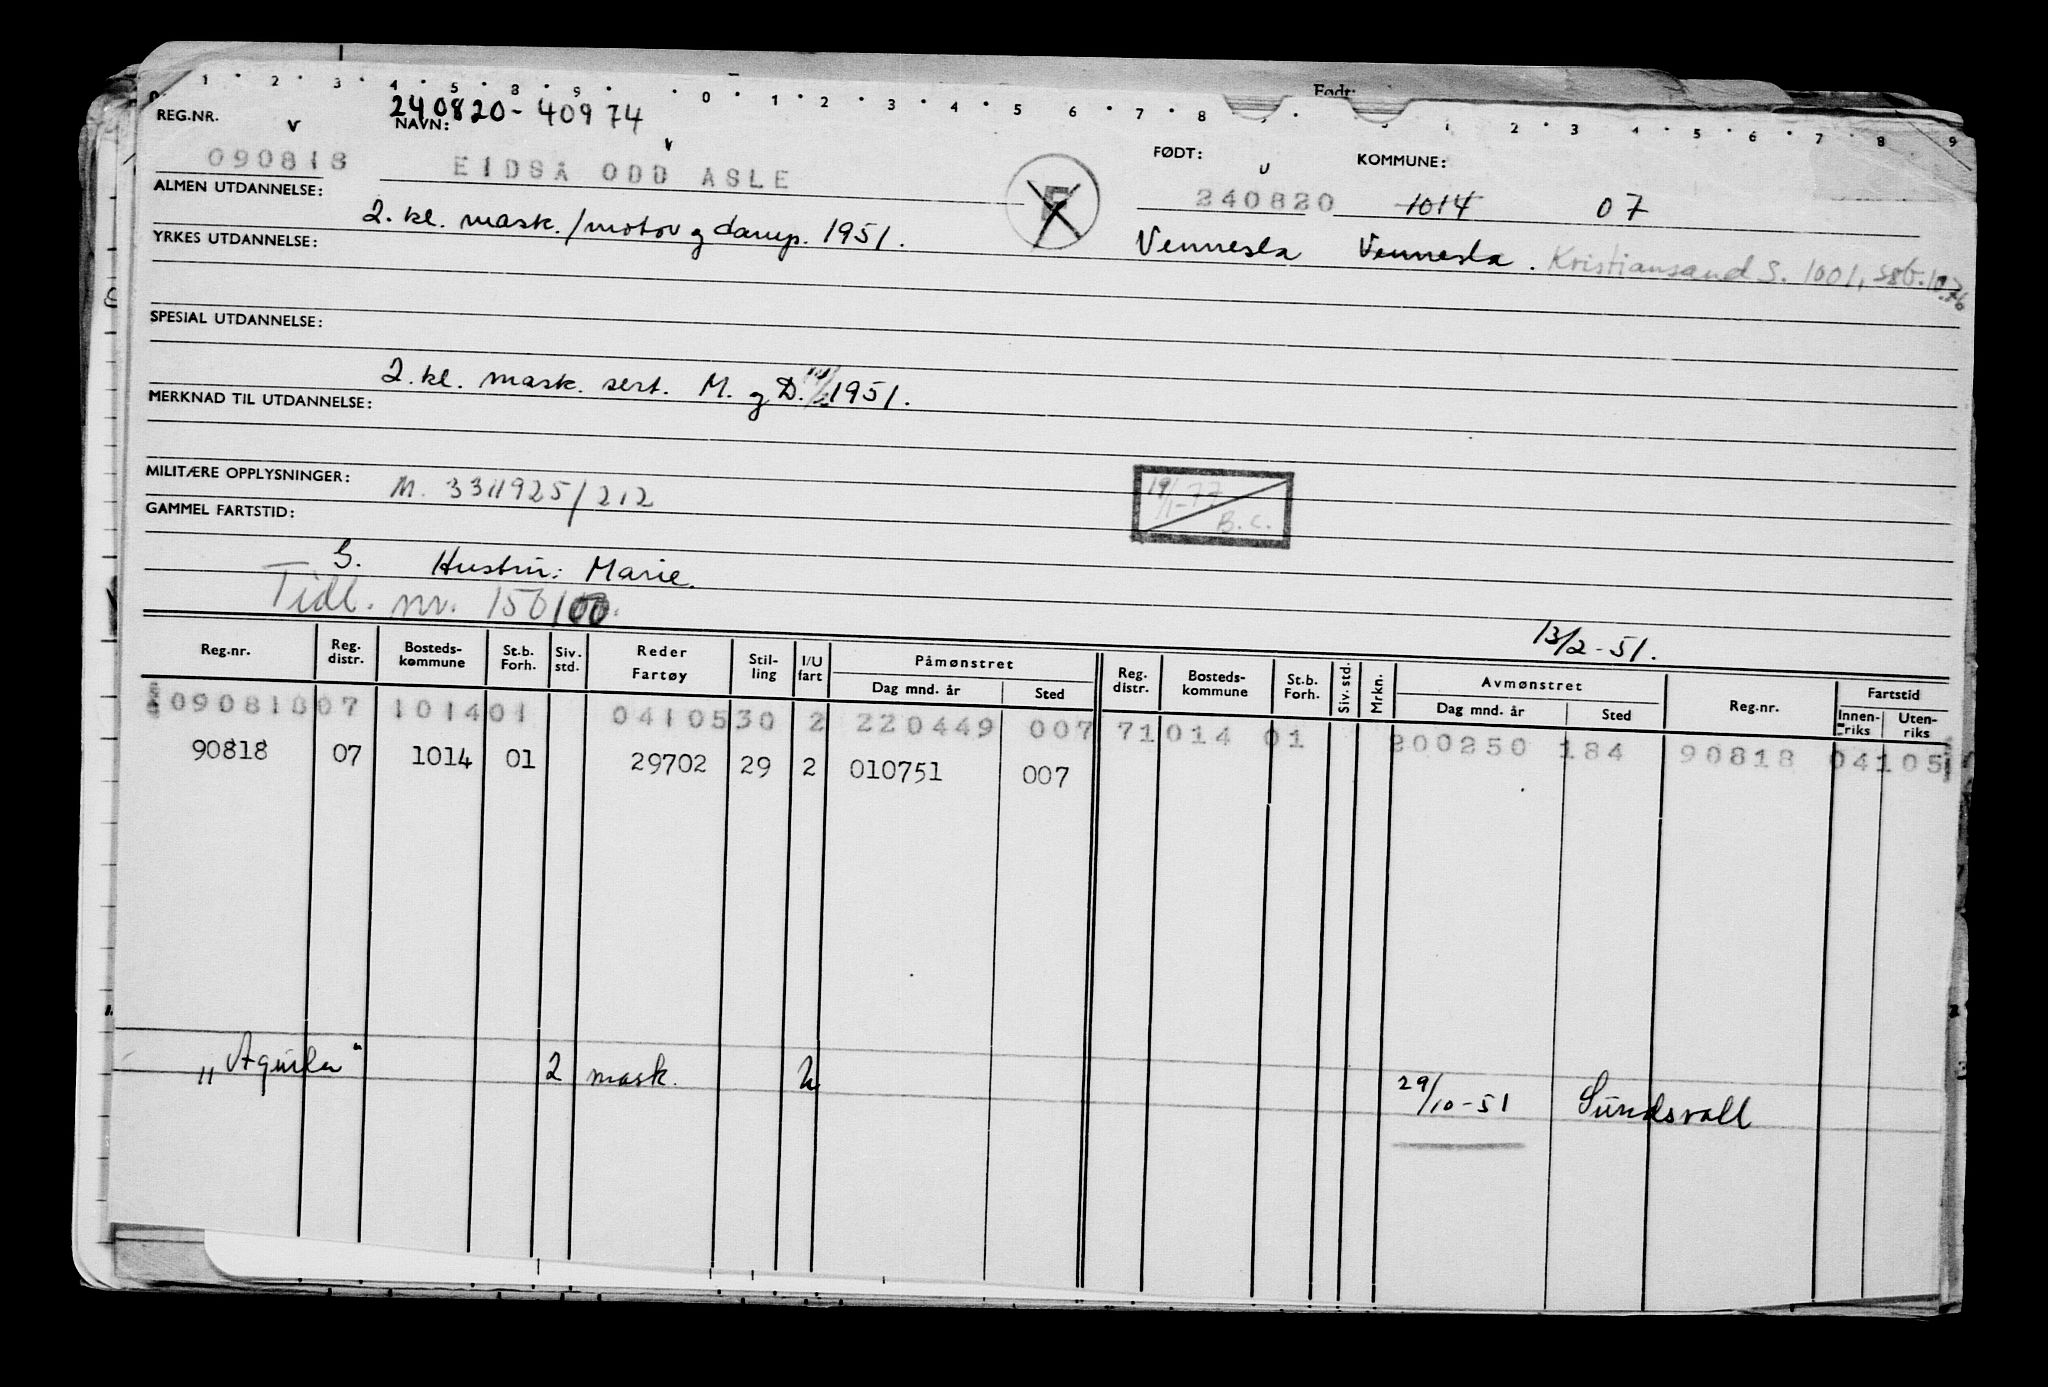 Født:
0 1 2 3 4 5 8 9 0 1 2 3 4 5 6 7 8 1 2 3 4 5 6 7 8 9
REG.NR. 240820-40974
NAVN: FØDT: KOMMUNE:
090818 EIDSÅ ODD ASLE 240820 1014 07
ALMEN UTDANNELSE: 2. kl. mask./motor og damp. 1951. Vennesla Vennesla. Kristiansand S. 1001,
YRKES UTDANNELSE:
SPESIAL UTDANNELSE:
2. kl. mask. sert. M. og D. 1951.
MERKNAD TIL UTDANNELSE:
MILITÆRE OPPLYSNINGER: M. 3311925/212
19/1-77 B.C.
GAMMEL FARTSTID:
G. Hustru: Marie.
Tidl. nr. 156100.
13/2-51.
Reg.nr. Reg. distr. Bosteds-kommune St.b. Forh. Siv. std. Reder Fartøy Stil-ling I/U fart Påmønstret Dag mnd. år Sted Reg. distr. Bosteds-kommune St.b. Forh. Siv. std. Mrkn. Avmønstret Dag mnd. år Sted Reg.nr. Fartstid Innen-riks Uten-riks
09081807 101401 0410530 2 220449 007 71014 01 200250 184 90818 04105
90818 07 1014 01 29702 29 2 010751 007
"Aquila" 2 mask. U 29/10-51 Sundsvall